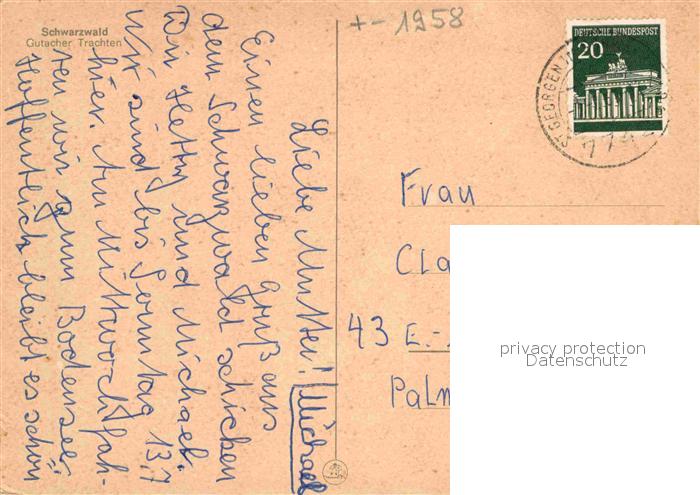 Schwarzwald
Gutacher Trachten
+- 1958
DEUTSCHE BUNDESPOST
20
ST GEORGEN
774
Liebe Mutter!
Einen lieben Gruß aus
dem Schwarzwald schicken
Dir Hetty und Michael.
Wir sind bis Sonntag 13.7
hier. Am Mittwoch fah-
ren wir zum Bodensee.
Hoffentlich bleibt es schön
Michael
Frau
Cla
43 E.-
Palm
privacy protection
Datenschutz